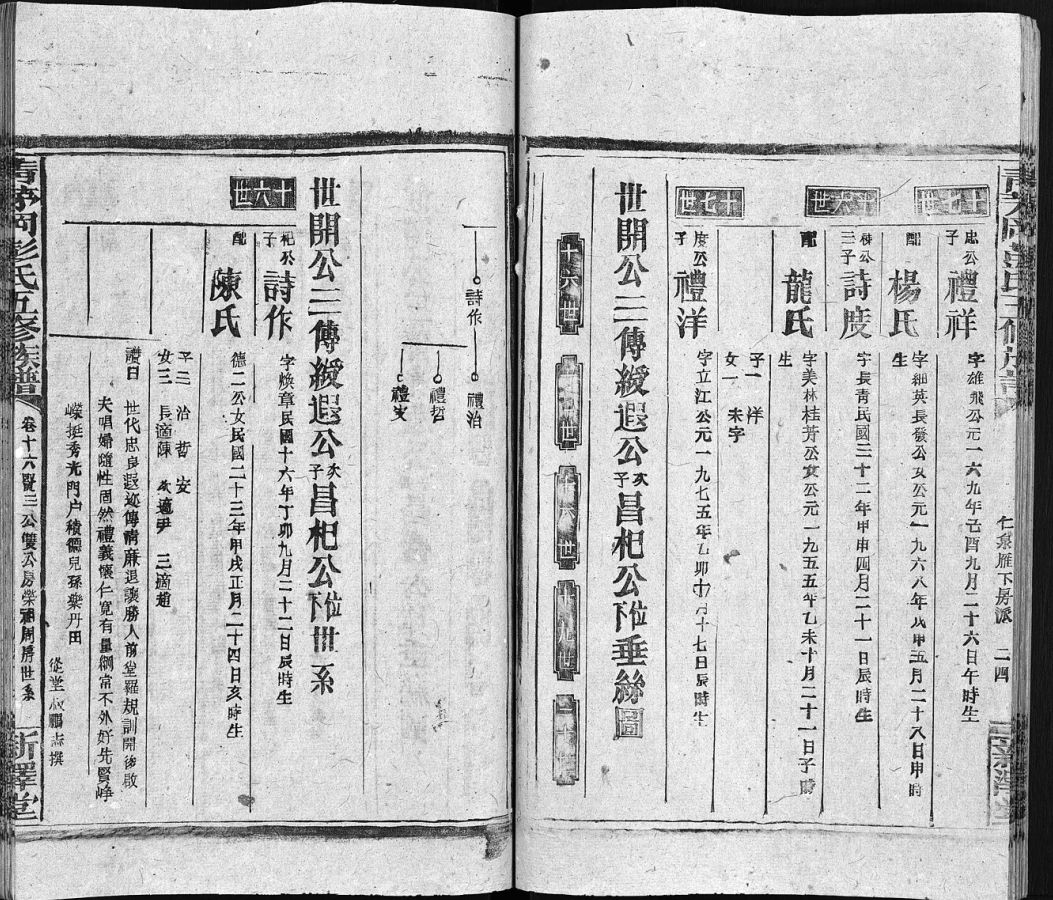 十七世
忠公子
禮祥
字雄飛公元一六九年己酉九月二十六日午時生
配
楊氏
字細英長發公女公元一九六八年戊申五月二十八日申時生
十六世
三子
詩度
字長青民國三十二年甲申四月二十一日辰時生
配
龍氏
字美林桂芳公女公元一九五五年乙未十月二十一日子時生
子一 洋
女一 未字
十七世
度公子
禮洋
字立江公元一九七五年乙卯十七日辰時生
世開公三傳綬遐公次子昌杞公位下垂絲圖
十六世
十七世
十八世
十九世
二十世
仁泉雁下房派 二四
詩作
禮治
禮哲
禮安
世開公三傳綬遐公次子昌杞公位下世系
十六世
杞公子
詩作
字煥章民國十六年丁卯九月二十二日辰時生
配
陳氏
德二公女民國二十三年甲戌正月二十四日亥時生
子三 治 哲 安
女三 長適陳 次適尹 三適趙
禮曰 世代忠良遐迩傳情麻退讓勝人前堂羅規訓開後啟
夫唱婦隨性固然禮義懷仁寬有量綱常不外好先賢崢
嶸挺秀光門户積德兒孫樂丹田
從堂叔鵬撰
青茅岡彭氏五修族譜
卷十六賢三公雙公房榮祖周房世系
新譯堂